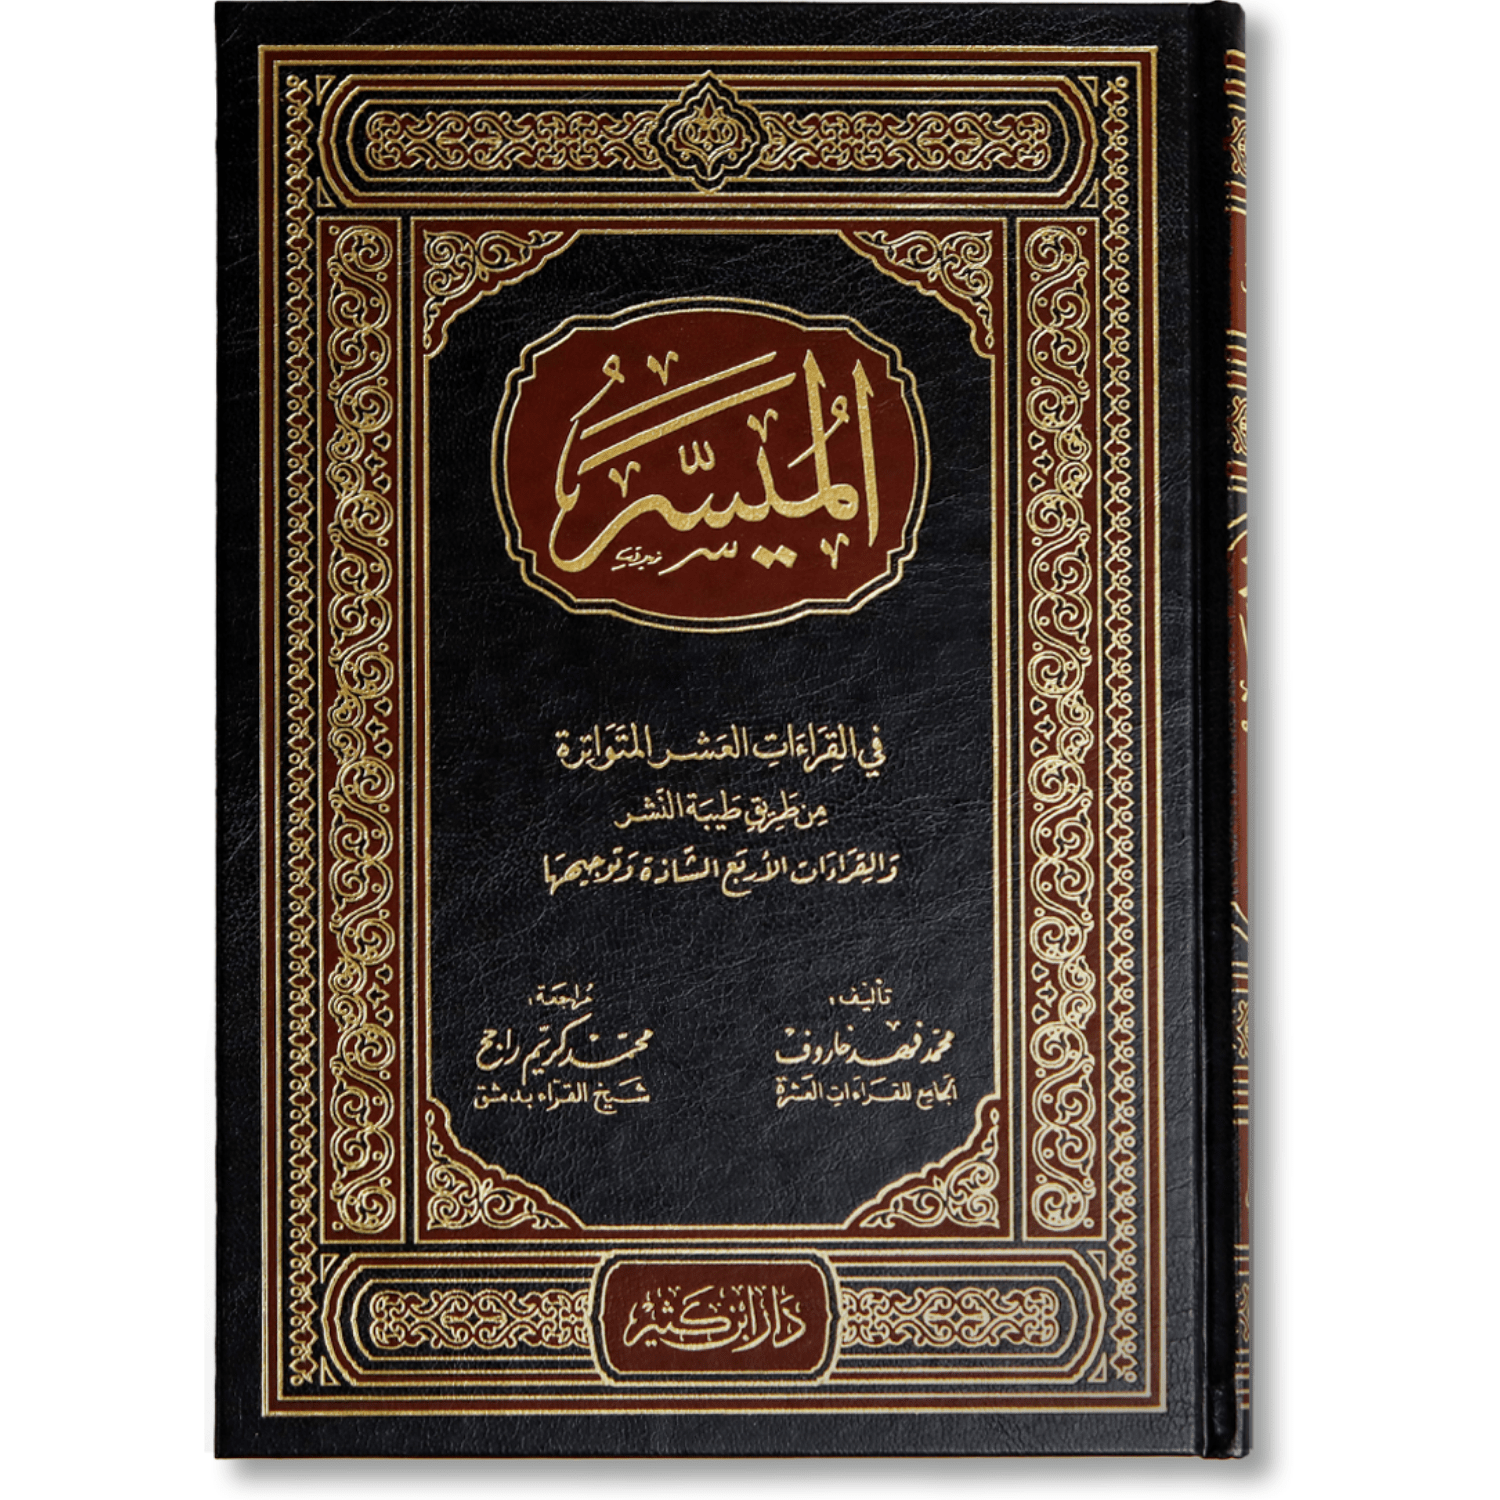 المُيَسَّرُ
في القِرَاءَاتِ العَشر المتَوَاتِرة
مِن طَرِيقِ طَيِّبَة النَشر
وَالقِرَاءَات الأربَع الشَّاذة وَتَوجيهِهَا
تأليف:
محمّد فهد خاروف
الجامع للقراءاتِ العَشرة
مُراجعَة:
محمّد كريّم راجح
شَيخ القرّاء بدمشق
دَار ابن كَثير